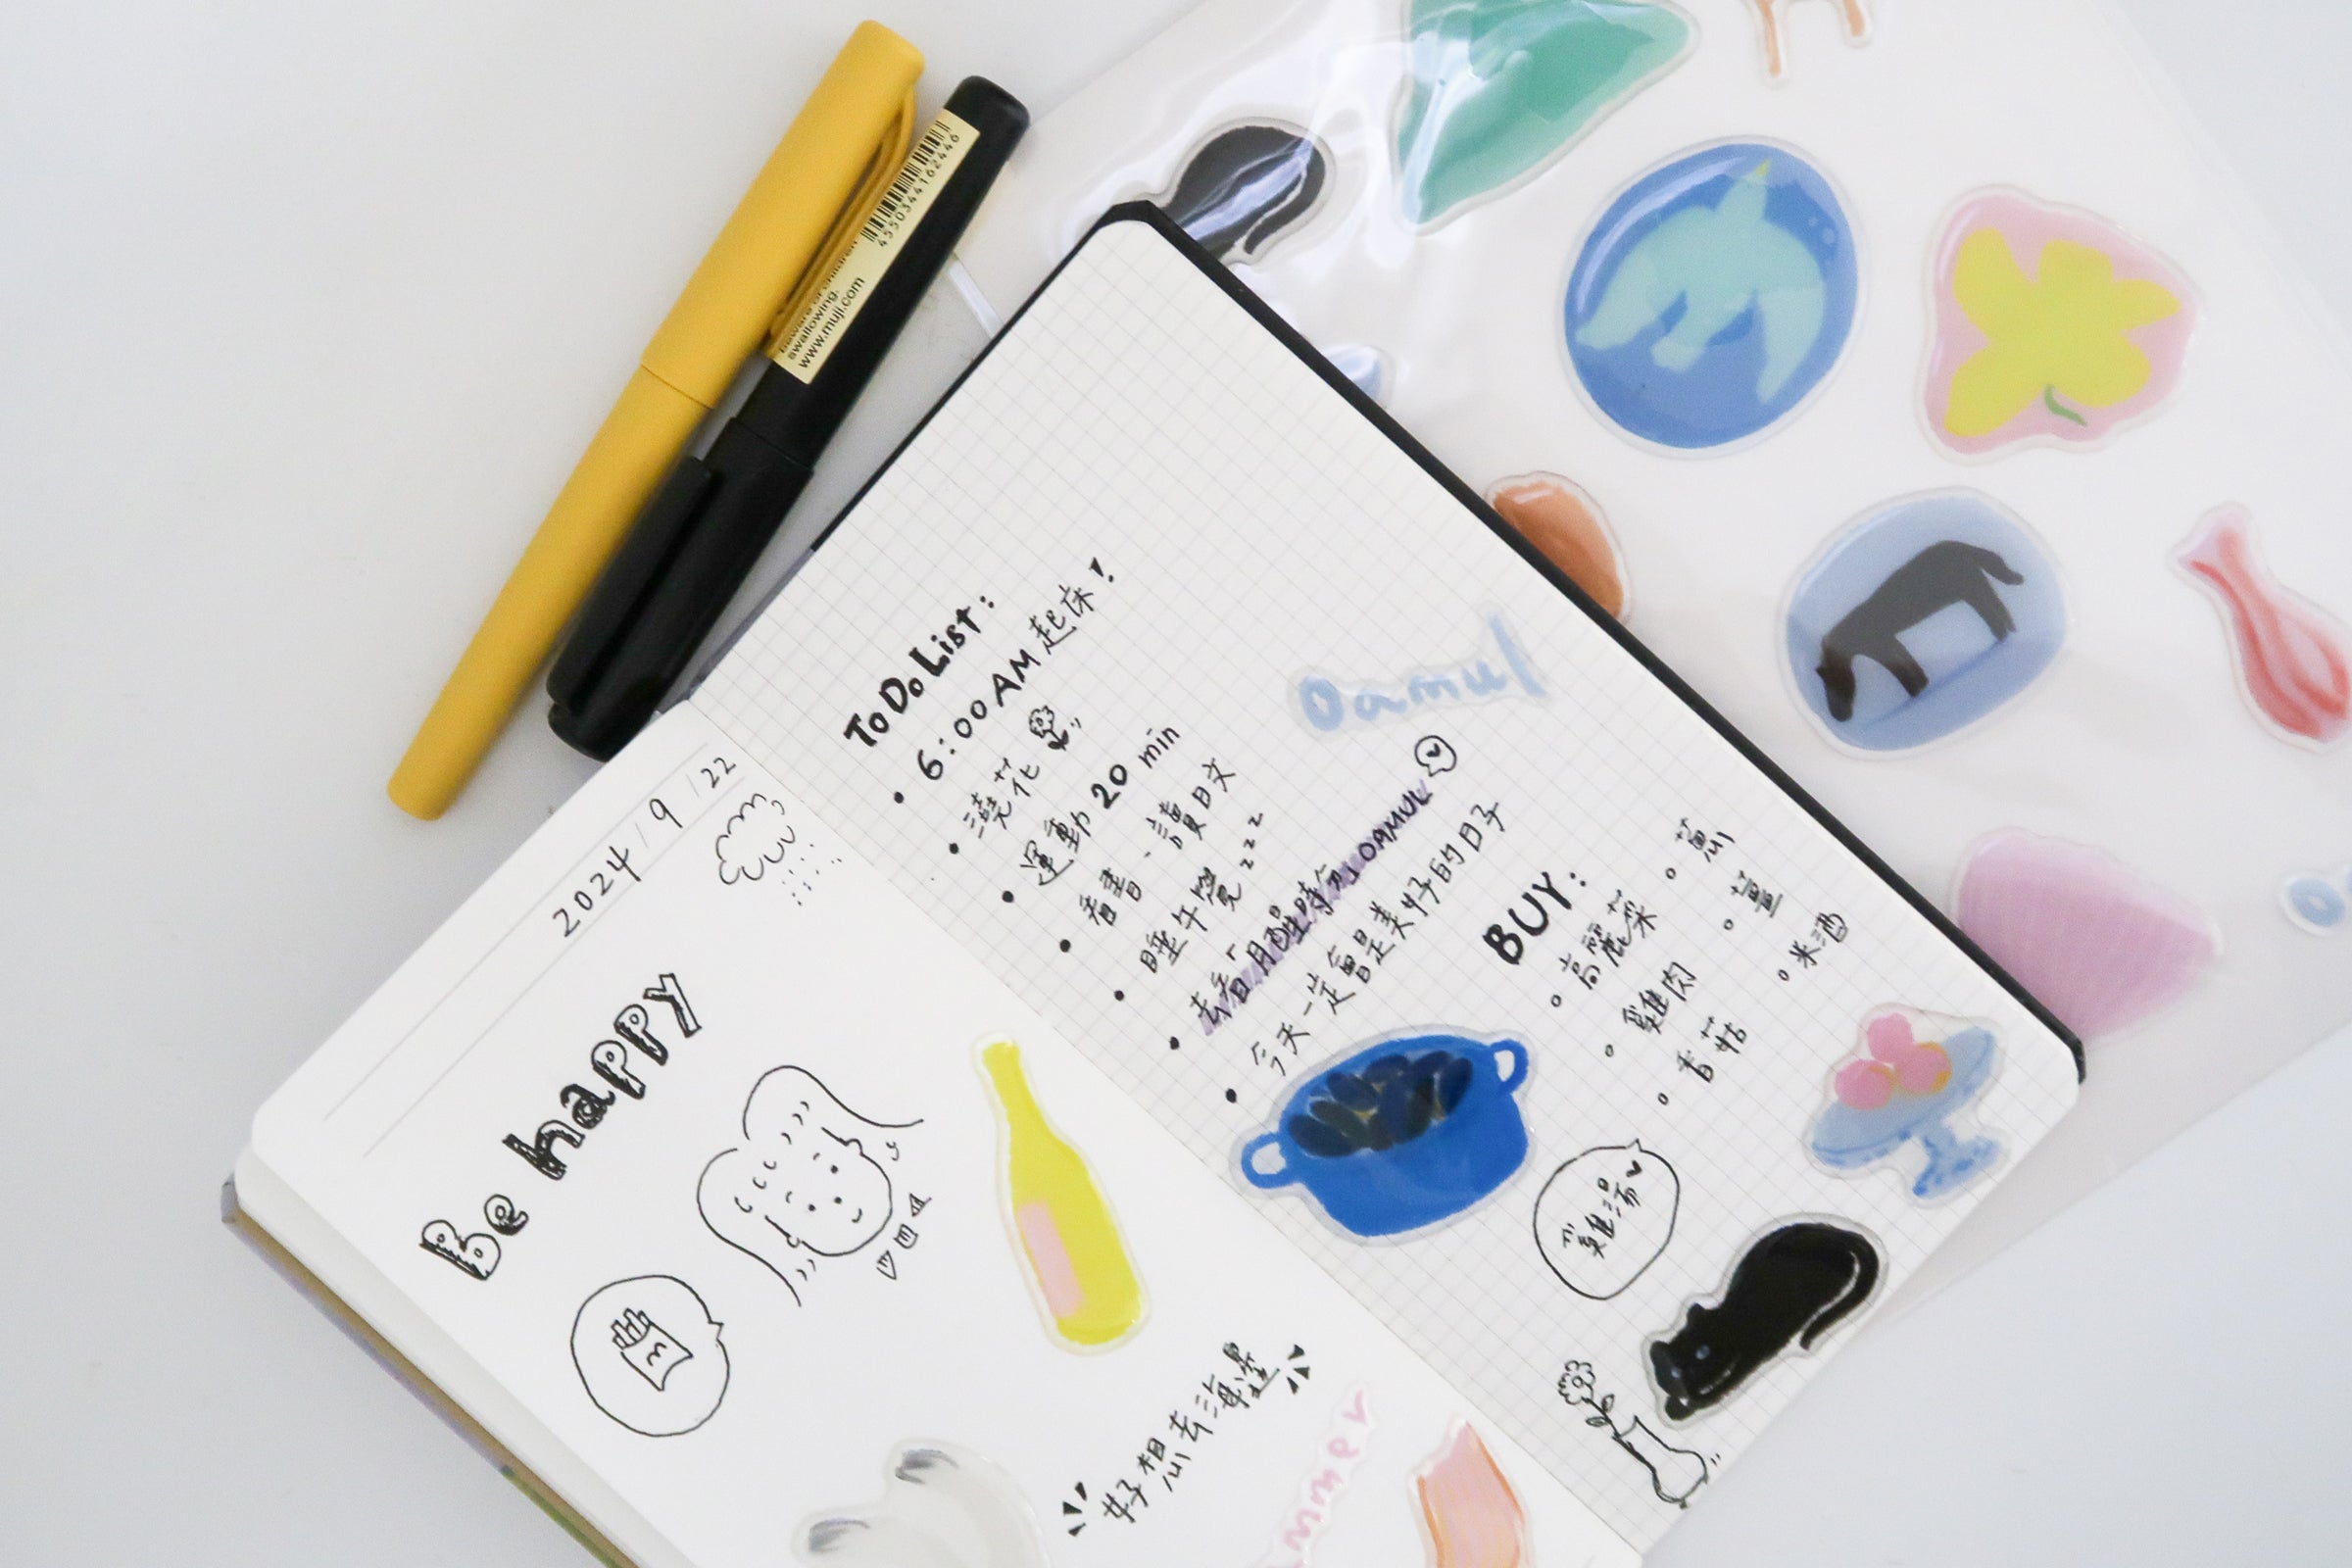 4550344162446
swallowing.
www.muji.com
2024/9/22
Be happy
好想去海邊
ToDo List:
• 6:00 AM 起床!
• 澆花
• 運動 20 min
• 看書、讀日文
• 睡午覺 zzz
• 去看「月球時氛」OAMUL
• 今天一定會是美好的日子
oamul
BUY:
◦ 高麗菜
◦ 雞肉
◦ 香菇
◦ 蔥
◦ 薑
◦ 米酒
雞湯